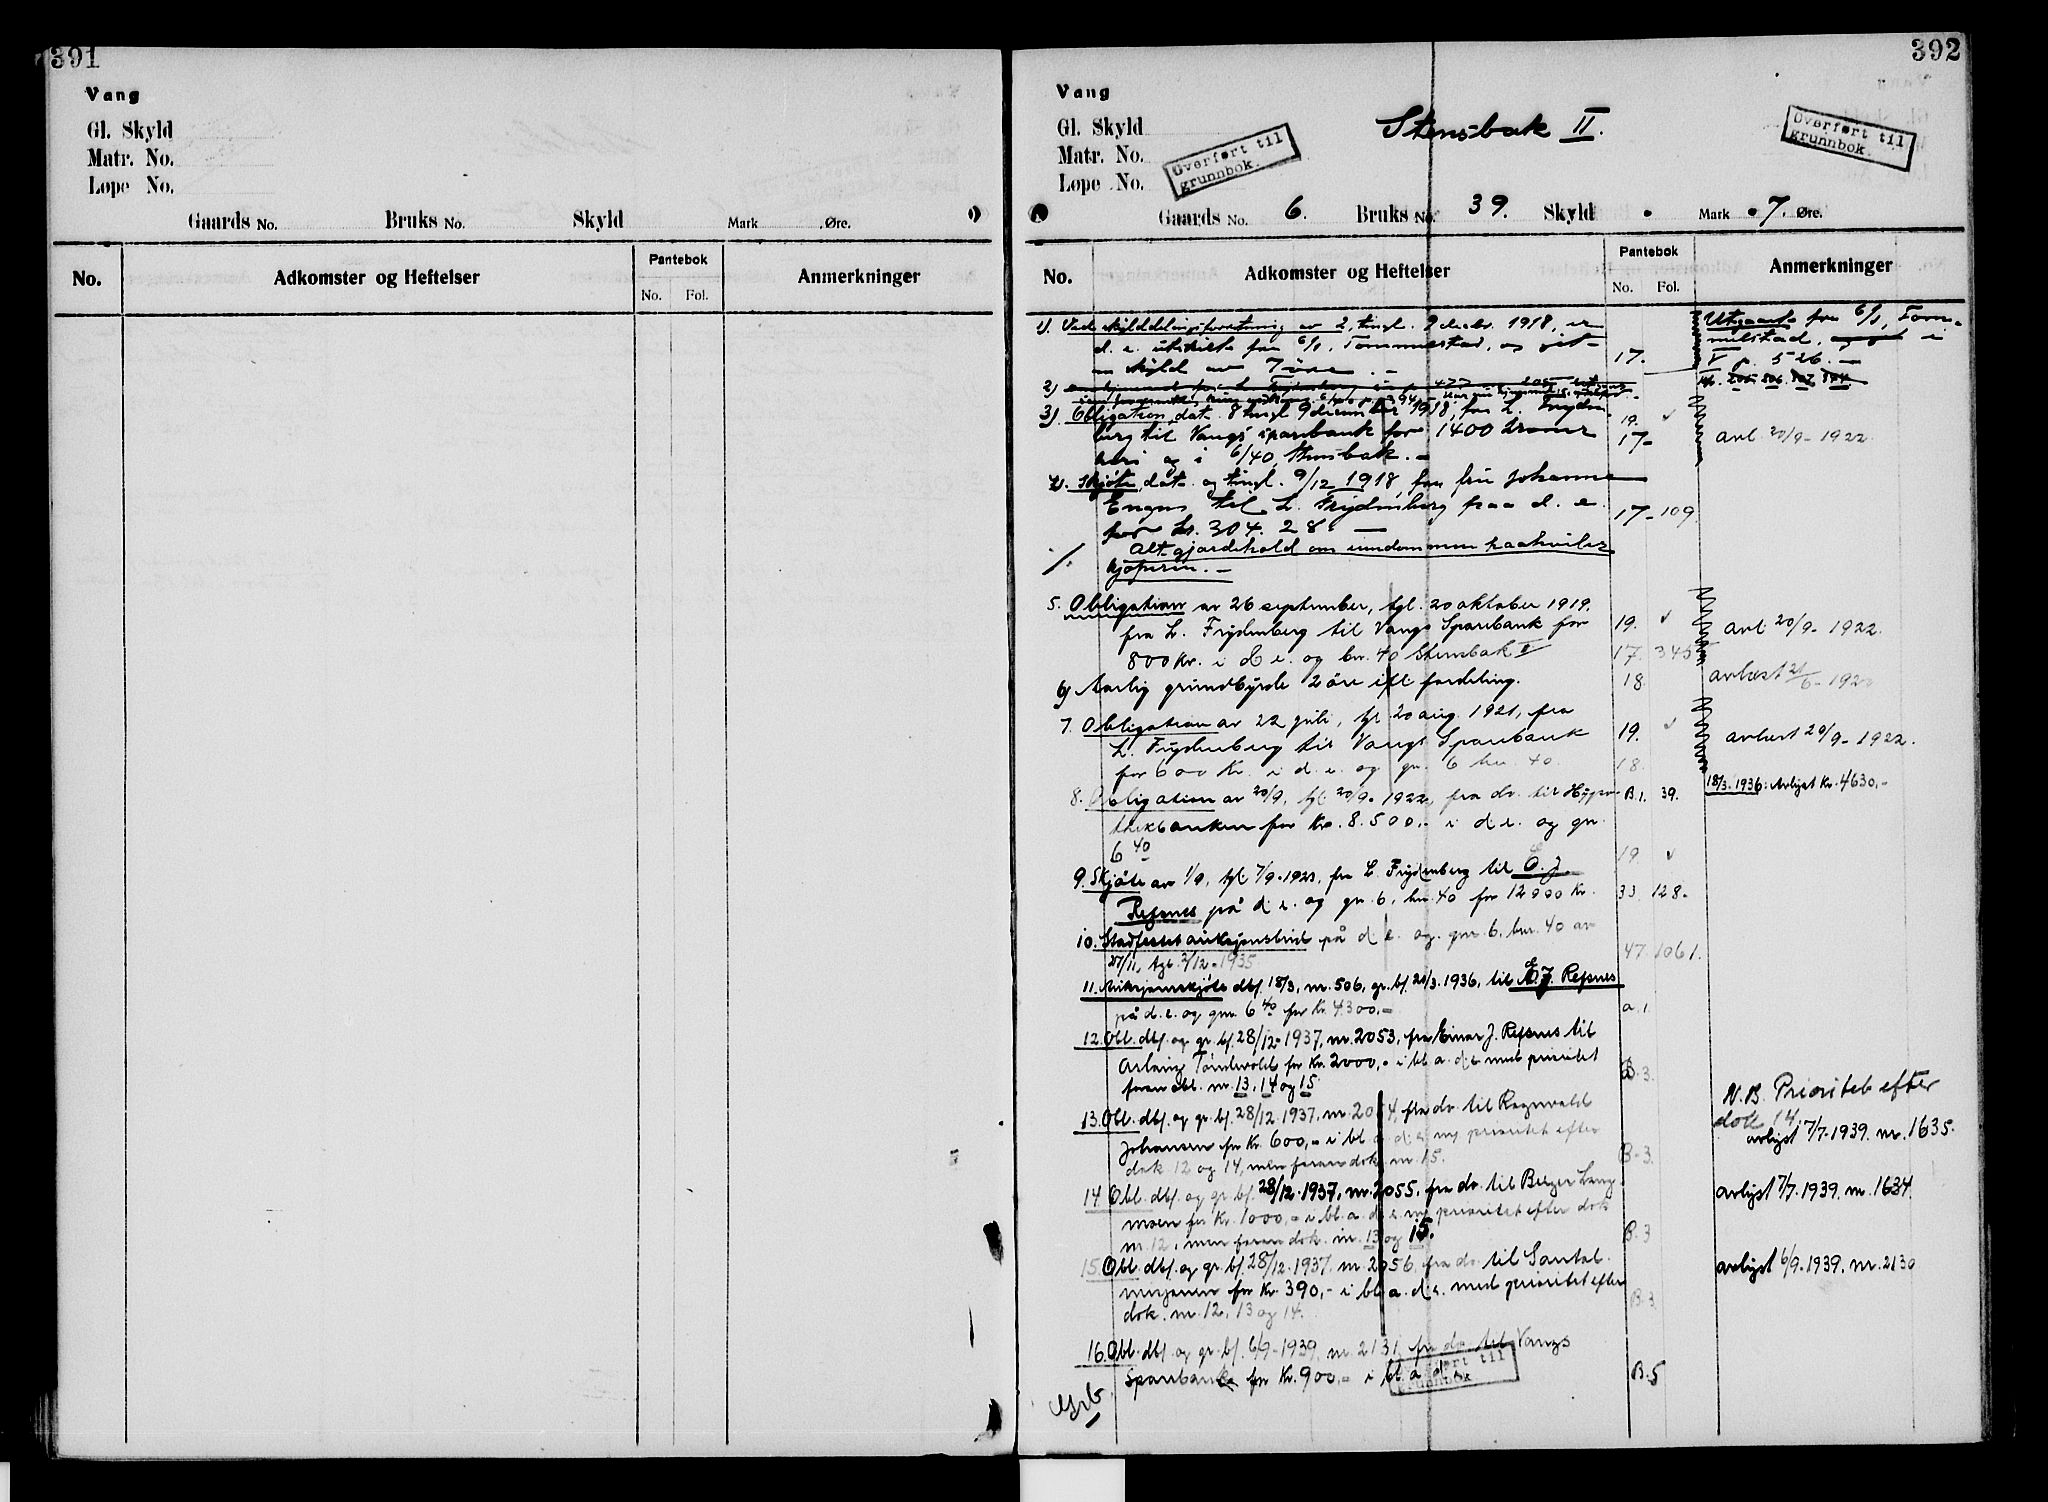 391
Vang
Gl. Skyld
Matr. No.
Løpe No.
Gaards No. Bruks No. Skyld Mark Øre.
No. Adkomster og Heftelser Pantebok Anmerkninger
No. Fol.
392
Vang
Gl. Skyld
Stensbak II.
Matr. No.
Løpe No.
Overført til
grunnbok.
Overført til
grunnbok.
Gaards No. 6. Bruks No. 39. Skyld Mark 7. Øre.
No. Adkomster og Heftelser Pantebok Anmerkninger
No. Fol.
1). Ved skylddelingsforretning av 2, tingl. 9 decbr. 1918, er
d. e. utskilt fra 6/1, Tommelstad, og git
en skyld av 7 øre. 17.
Utgaat fra 6/1, Tom-
melstad, i
V p. 526.
2)
3). Obligation dat. 8 tingl 9 december 1918, fra L. Fryden- 19.
berg til Vangs sparebank for 1400 kroner 17-
heri og i 6/40, Stensbak.
avl 20/9- 1922
4). Skjøte dat. og tingl. 9/12 1918 fra fru Johanne
Engen til L. Frydenberg paa d. e. 17- 109
for kr. 304.28.
Alt gjærdehold om eiendommen paahviler
kjøperen. -
5. Obligation av 26 september, tgl. 20 oktober 1919.
fra L. Frydenberg til Vangs Sparebank for 19.
800 kr. i d. e. og bn. 40 Stensbak 17. 345
avl. 20/9- 1922.
6) Aarlig grundbyrde 2 øre ifl fordeling. 18.
avløst 21/6- 192
7. Obligation av 22 juli, tgl. 20 aug. 1921, fra
L. Frydenberg til Vangs Sparebank 19.
for 600 kr. i d. e. og gn. 6 bn. 40. 18.
avlæst 20/9- 1922.
8. Obligation av 20/9, tgl 20/9- 1922, fra do. til Hypo- B.1. 39.
thekbanken for kr. 8.500.- i d. e. og gn.
6 40
18/3. 1936: Avlyst kr. 4630.-
19.
9. Skjøte av 1/9, tgl 7/9- 1923, fra L. Frydenberg til E. J.
Refsnes på d. e. og gn. 6, bn. 40 for 12000 kr. 33. 128.
10. Stadfestet auksjonsbud på d. e. og gnr. 6, bnr. 40 av
27/11, tgl. 2/12- 1935 47 1061.
11. Auksjonsskjøte dbf. 18/3, nr. 506, gr. bf. 20/3. 1936, til E. J. Refsnes
på d. e. og gnr. 6 40 for kr. 4300.- a. 1.
12. Obl. dbf. og gr. bf. 28/12-1937, nr. 2053, fra Einar J. Refsnes til
Aslaug Tønsvold for kr. 2000,- i bl. a. d. e. med prioritet
foran obl. nr. 13, 14 og 15. B. 3.
13. Obl. dbf. og gr. bf. 28/12. 1937, nr. 2054, fra do. til Ragnvald
Johansen for kr. 600,- i bl. a. d. e. m/ prioritet efter
dok. 12 og 14, men foran dok. nr. 15. B-3.
N.B. Prioritet efter
dok 14
avlyst 7/7. 1939. nr. 1635.
14. Obl. dbf. og gr. bf. 28/12. 1937, nr. 2055, fra do. til Birger Lang-
moen for kr. 1000,- i bl. a. d. e. m/ prioritet efter dok
nr. 12, men foran dok. nr. 13 og 15. B. 3
avlyst 7/7. 1939. nr. 1634.
15. Obl. dbf. og gr. bf. 28/12. 1937, nr. 2056, fra do. til Santal-
misjonen for kr. 390,- i bl. a. d. e. med prioritet efter
dok. nr. 12, 13 og 14. B. 3.
avlyst 6/9. 1939. nr. 2130
16. Obl. dbf. og gr. bf. 6/9- 1939, nr. 2131, fra do. til Vangs
Sparebank for kr. 900.- i bl. a. d. e. B. 5
Overført til
grunnbok